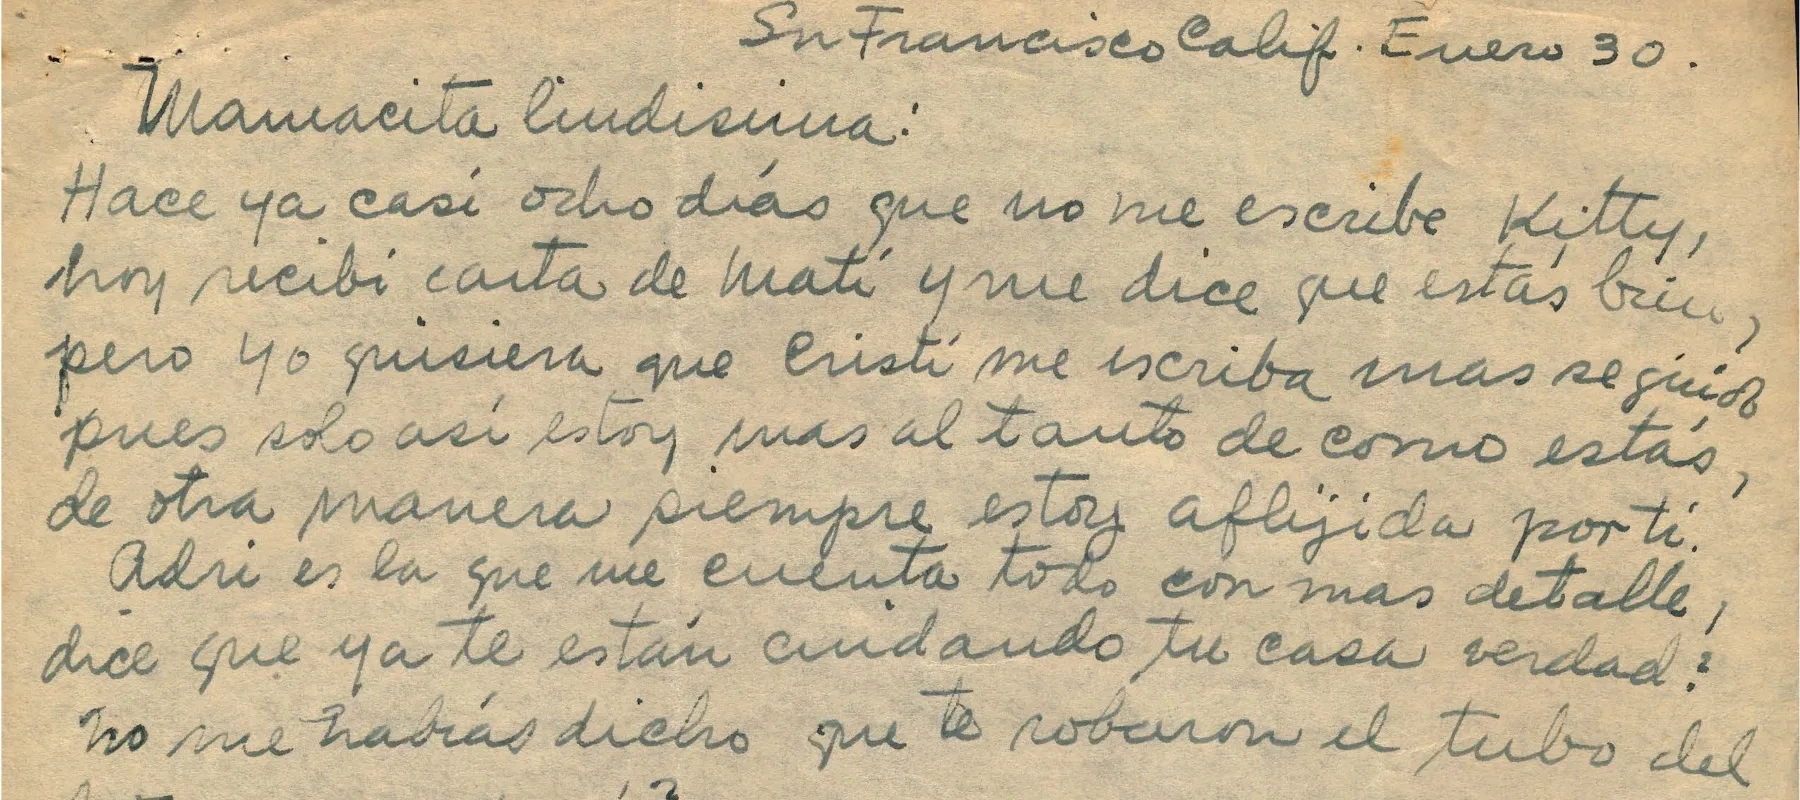 Sn Francisco Calif. Enero 30.
Mamacita lindisima:
Hace ya casí ocho días que no me escribe Kitty,
hoy recibí carta de Matí y me dice que estás bien,
pero yo quisiera que Cristí me escriba mas seguido
pues solo así estoy mas al tanto de como estás,
de otra manera siempre estoy aflijida por tí.
Adri es la que me cuenta todo con mas detalle,
dice que ya te están cuidando tu casa verdad?
No me habías dicho que te robaron el tubo del